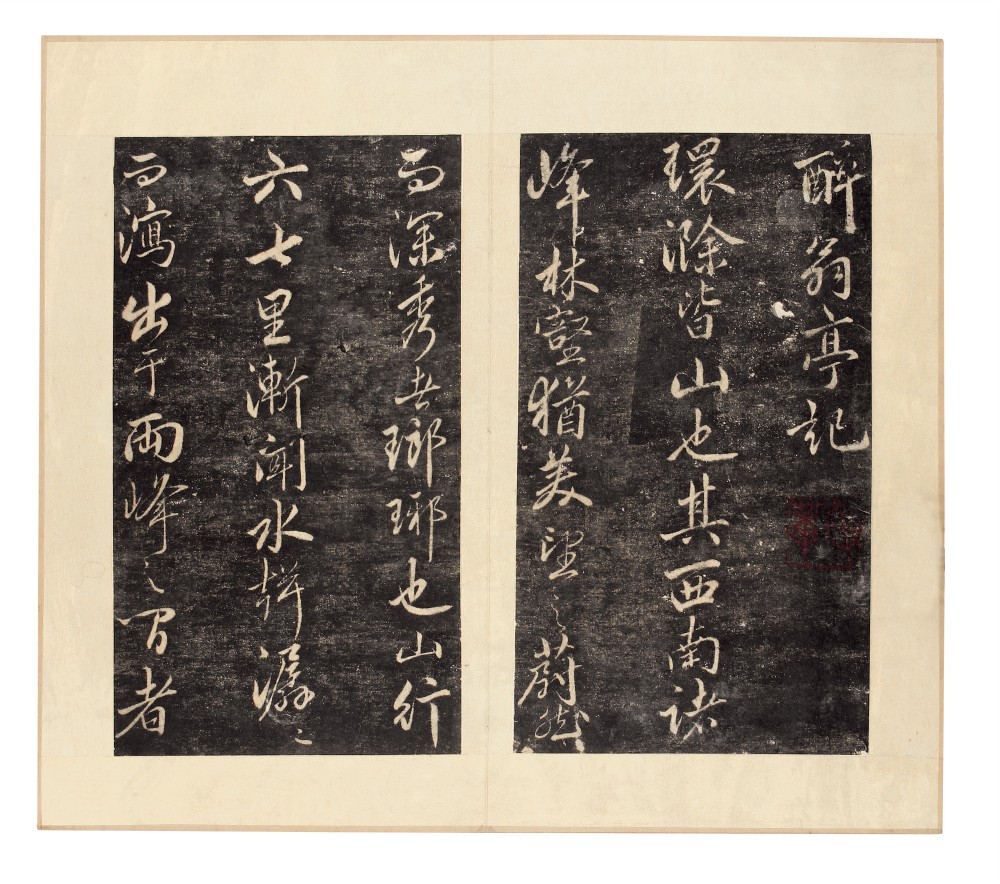 醉翁亭記
環滁皆山也其西南諸
峰林壑猶美望之蔚然
而深秀者瑯琊也山行
六七里漸聞水聲潺〻
而瀉出于兩峰之間者